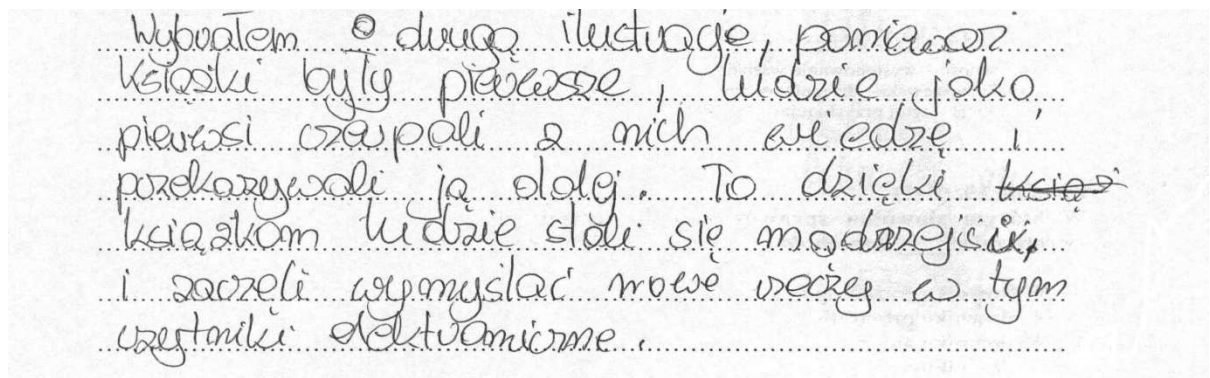 Wybrałem drugą ilustrację, ponieważ
książki były pierwsze, ludzie jako
pierwsi czerpali z nich wiedzę i
przekazywali ją dalej. To dzięki
książkom ludzie stali się mądrzejsi,
i zaczęli wymyślać nowe rzeczy w tym
czytniki elektroniczne.